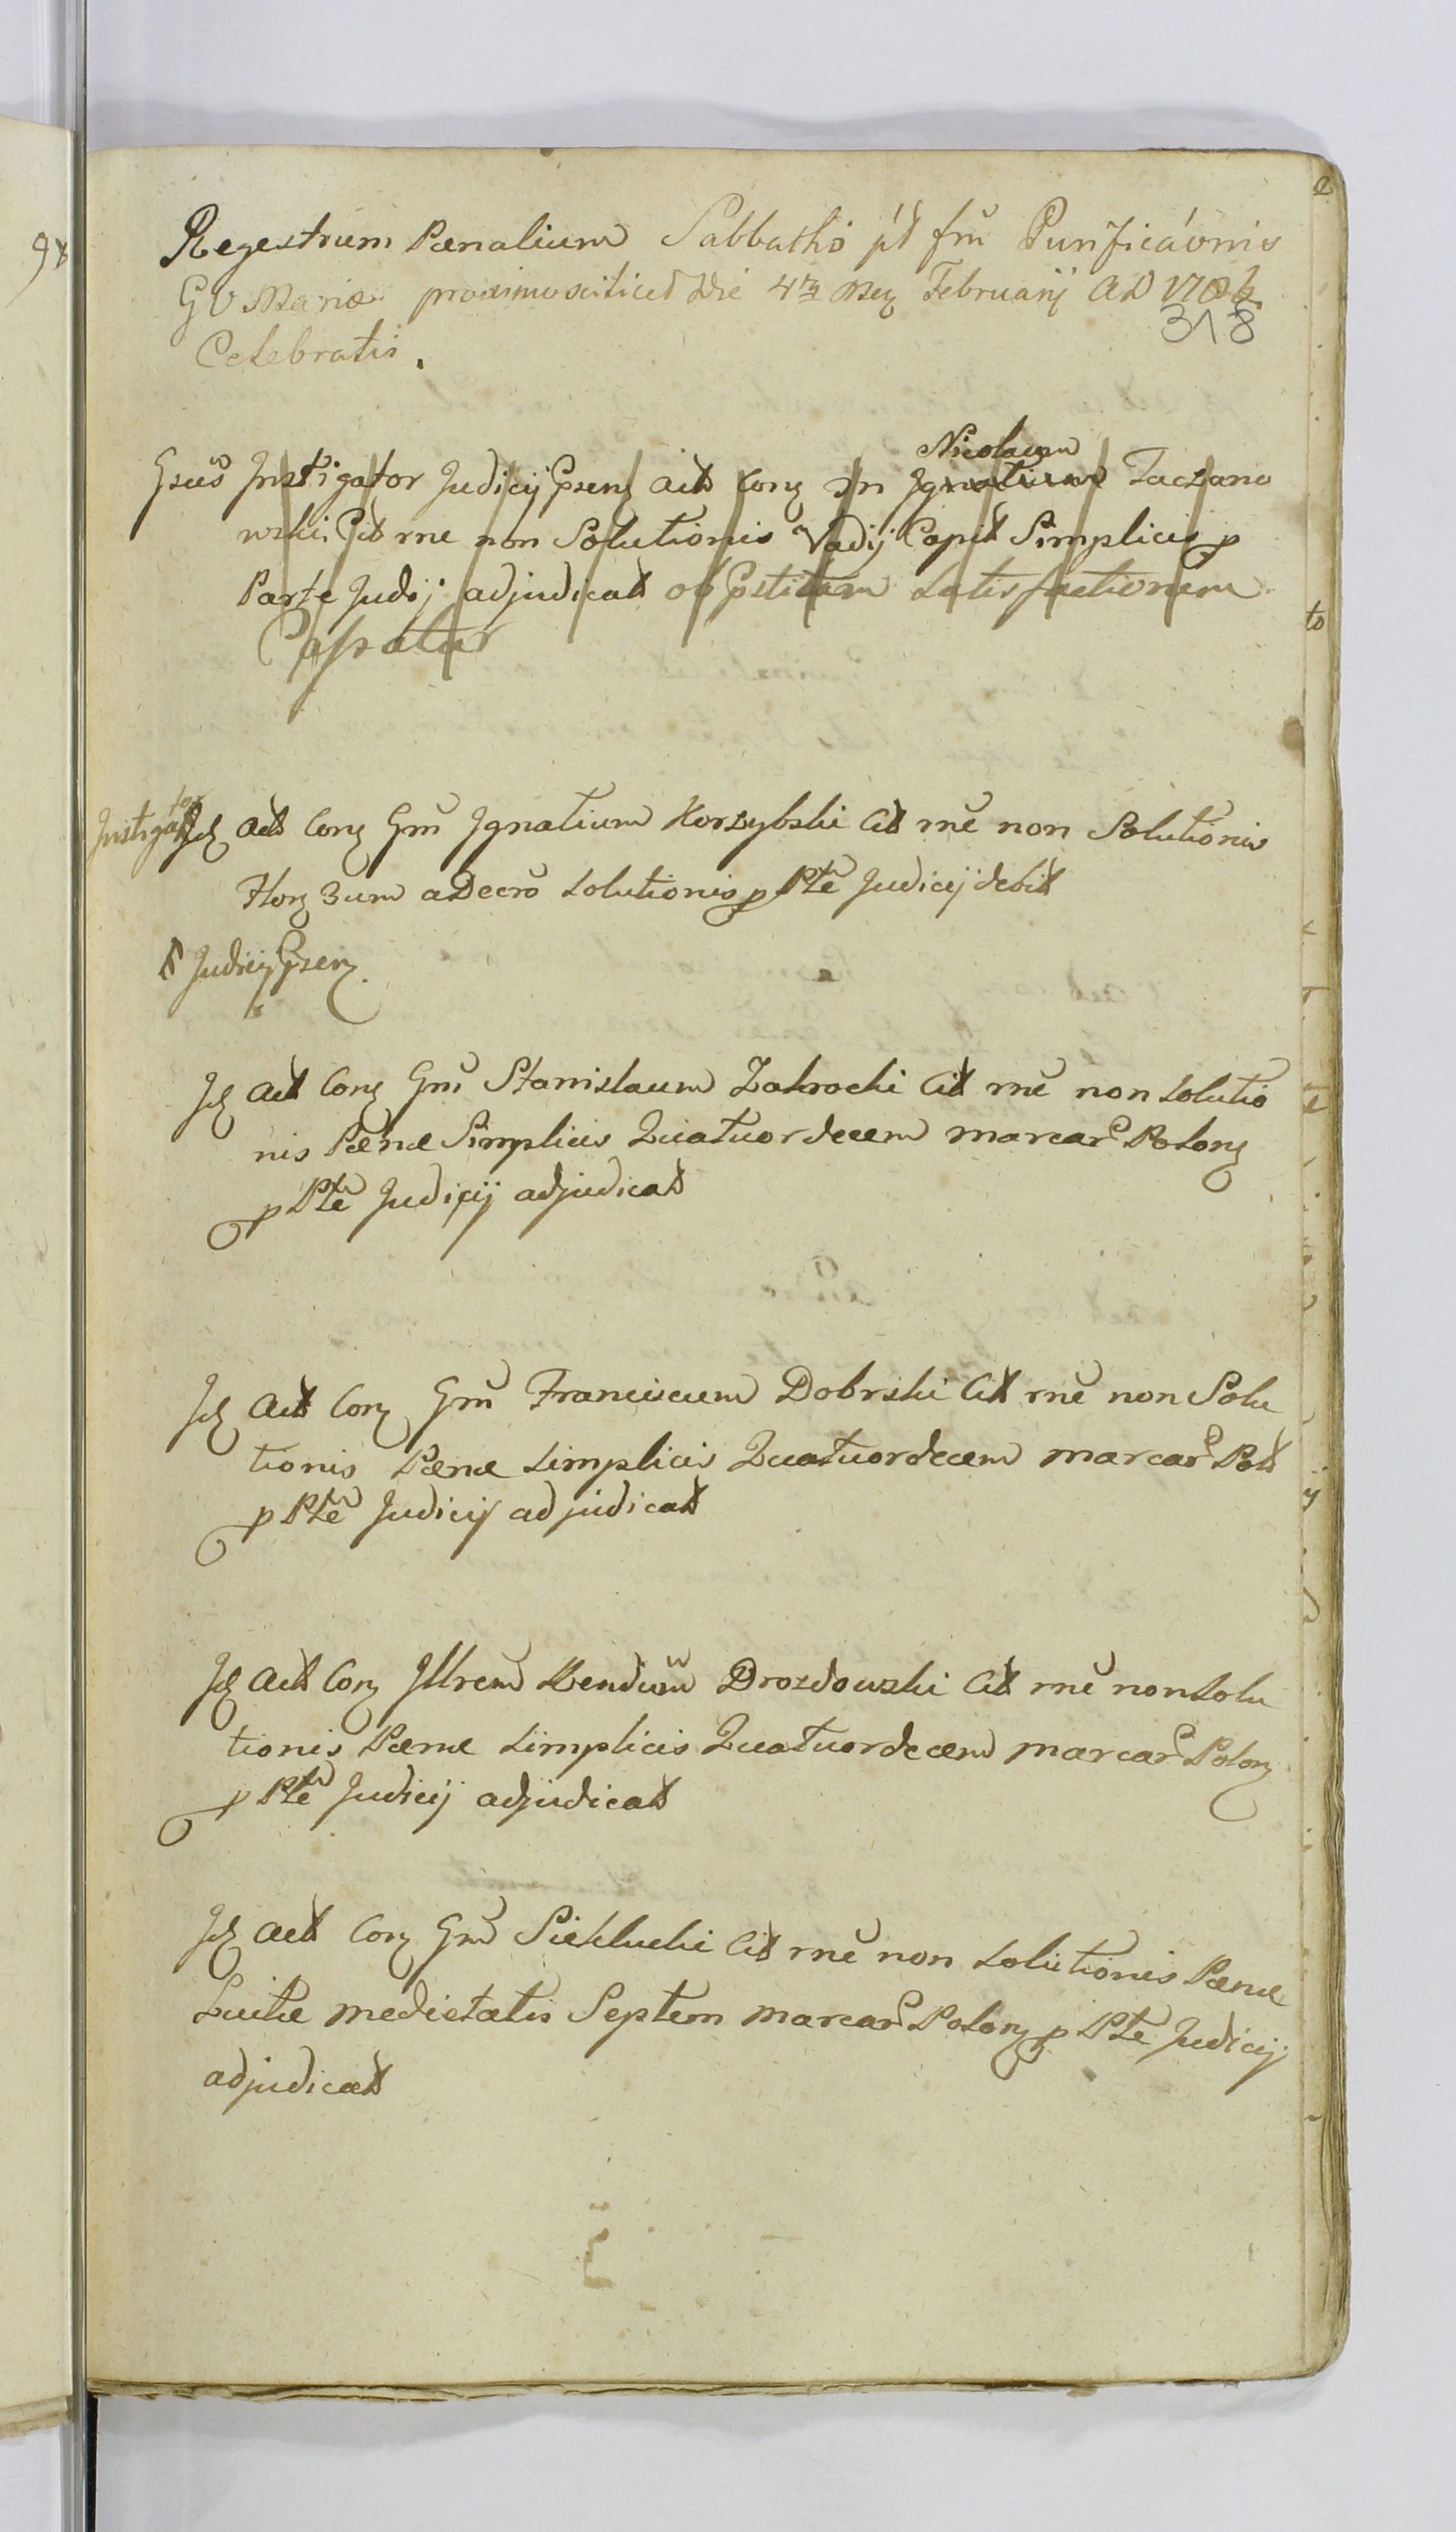 98
Regestrum Pœnalium Sabbatho pt frũ Purificáonis
G V Mariæ proximo scilicet Die 4ta Mez Februarij AD
318
Celebratis.
Gsũs Instigator Judicij Gsenz Act Conz Nicolaum Ignatium Taczano
wski Cit rne non Solutionis Vadij Capit Simplicis p
Parte Judij adjudicat ob Pstitam Satisfactionem
Cassatur
Instigator
Id Act Conz Gm̃ Ignatium Korzybski Cit rnẽ non Solutionis
Flor 3um a Decrõ Solutionis p Ptẽ Judicij debit
Judicij Gsenz
Id Act Conz Gm̃ Stanislaum Zakrocki Cit rnẽ non Solutio
nis Pœnæ Simplicis Quatuordecem marcar Polonz
p Ptẽ Judicij adjudicat
Id Act Conz Gm̃ Franciscum Dobrski Cit rnẽ non Solu
tionis Pœnæ Simplicis Quatuordecem marcar Pol
p Ptẽ Judicij adjudicat
Id Act Conz Illrem Drozdowski Cit rnẽ non Solu
tionis Pœnæ Simplicis Quatuordecem marcar Polonz
p Ptẽ Judicij adjudicat
Id Act Conz Gm̃ Siekłucki Cit rnẽ non Solutionis Pœnæ
Luitæ medietatis Septem marcar Polonz p Ptẽ Judicij
adjudicat